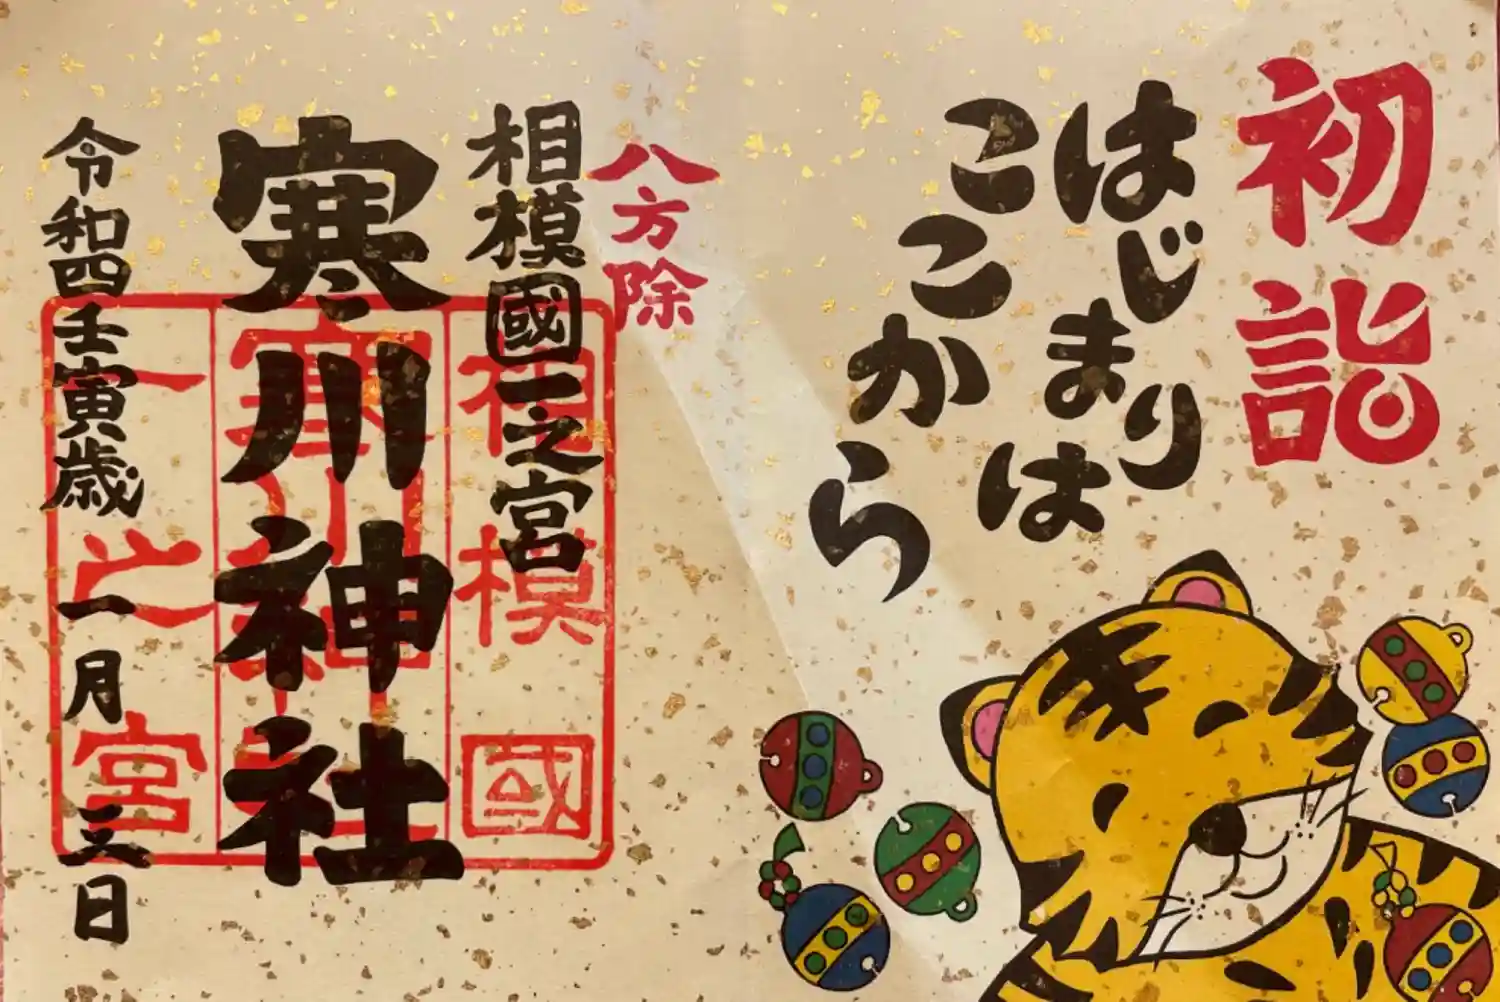 初詣
はじまりは
ここから
八方除
相模國一之宮
寒川神社
令和四壬寅歳
一月三日
相模國
寒川神社
一之宮